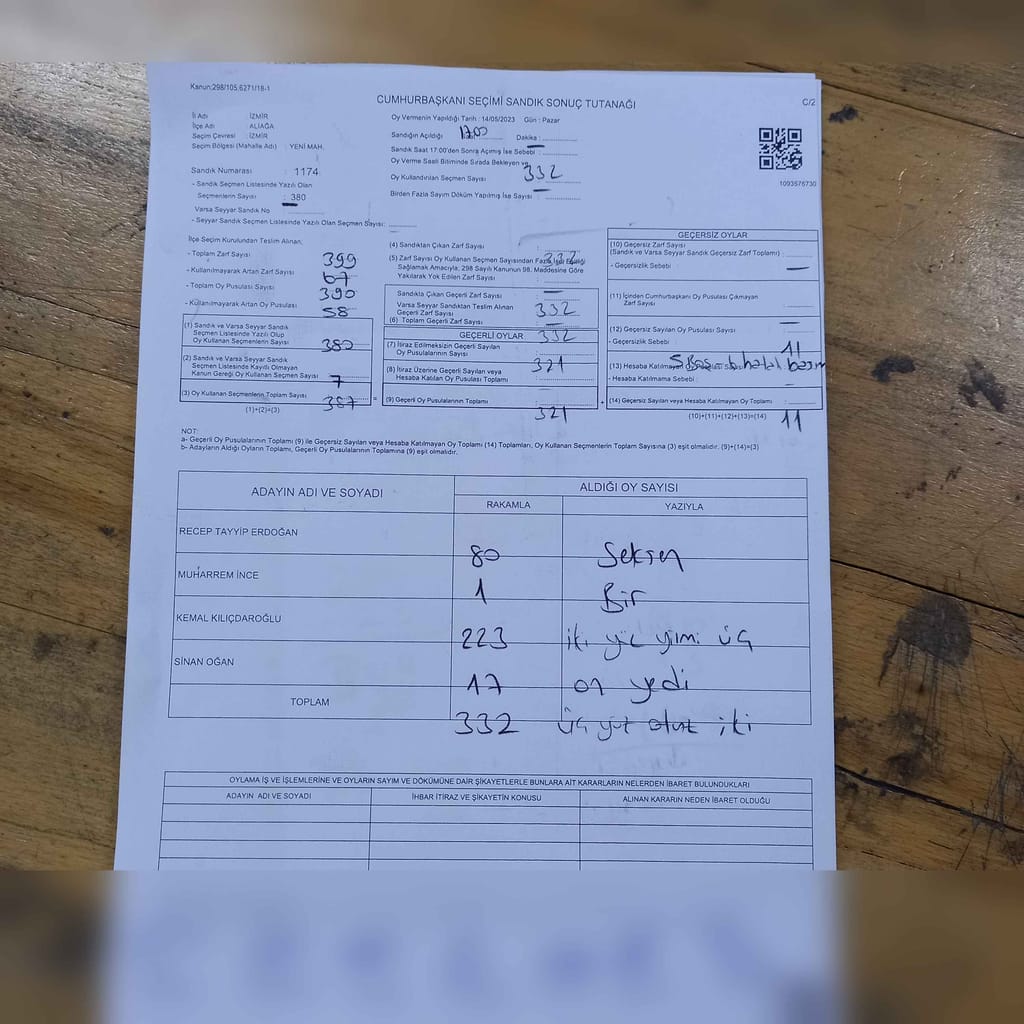 Kanun:298/105,6271/18-1
CUMHURBAŞKANI SEÇİMİ SANDIK SONUÇ TUTANAĞI
C/2
İl Adı : İZMİR
İlçe Adı : ALİAĞA
Seçim Çevresi : İZMİR
Seçim Bölgesi (Mahalle Adı) : YENİ MAH.
Sandık Numarası : 1174
- Sandık Seçmen Listesinde Yazılı Olan
Seçmenlerin Sayısı : 380
Varsa Seyyar Sandık No
- Seyyar Sandık Seçmen Listesinde Yazılı Olan Seçmen Sayısı:
Oy Vermenin Yapıldığı Tarih : 14/05/2023 Gün : Pazar
Sandığın Açıldığı 17.00 Dakika :
Sandık Saat 17:00'den Sonra Açımış İse Sebebi :
Oy Verme Saati Bitiminde Sırada Bekleyen ve
Oy Kullandırılan Seçmen Sayısı 332
Birden Fazla Sayım Döküm Yapılmış İse Sayısı :
1093576730
İlçe Seçim Kurulundan Teslim Alınan;
- Toplam Zarf Sayısı 399
- Kullanılmayarak Artan Zarf Sayısı 67
- Toplam Oy Pusulası Sayısı 390
- Kullanılmayarak Artan Oy Pusulası 58
(1) Sandık ve Varsa Seyyar Sandık
Seçmen Listesinde Yazılı Olup
Oy Kullanan Seçmenlerin Sayısı 380
(2) Sandık ve Varsa Seyyar Sandık
Seçmen Listesinde Kayıtlı Olmayan
Kanun Gereği Oy Kullanan Seçmen Sayısı 7
(3) Oy Kullanan Seçmenlerin Toplam Sayısı 387
(1)+(2)=(3)
(4) Sandıktan Çıkan Zarf Sayısı : 332
(5) Zarf Sayısı Oy Kullanan Seçmen Sayısından Fazla İse Eşitliği
Sağlamak Amacıyla, 298 Sayılı Kanunun 98. Maddesine Göre
Yakılarak Yok Edilen Zarf Sayısı
Sandıkla Çıkan Geçerli Zarf Sayısı
Varsa Seyyar Sandıktan Teslim Alınan
Geçerli Zarf Sayısı 332
(6) Toplam Geçerli Zarf Sayısı 332
GEÇERLİ OYLAR
(7) İtiraz Edilmeksizin Geçerli Sayılan
Oy Pusulalarının Sayısı 321
(8) İtiraz Üzerine Geçerli Sayılan veya
Hesaba Katılan Oy Pusulası Toplamı
(9) Geçerli Oy Pusulalarının Toplamı 321
GEÇERSİZ OYLAR
(10) Geçersiz Zarf Sayısı
(Sandık ve Varsa Seyyar Sandık Geçersiz Zarf Toplamı)
- Geçersizlik Sebebi
(11) İçinden Cumhurbaşkanı Oy Pusulası Çıkmayan
Zarf Sayısı
(12) Geçersiz Sayılan Oy Pusulası Sayısı
- Geçersizlik Sebebi : 11
(13) Hesaba Katılmayan
- Hesaba Katılmama Sebebi :
(14) Geçersiz Sayılan veya Hesaba Katılmayan Oy Toplamı :
(10)+(11)+(12)+(13)=(14) 11
NOT:
a- Geçerli Oy Pusulalarının Toplamı (9) ile Geçersiz Sayılan veya Hesaba Katılmayan Oy Toplamı (14) Toplamları, Oy Kullanan Seçmenlerin Toplam Sayısına (3) eşit olmalıdır. (9)+(14)=(3)
b- Adayların Aldığı Oyların Toplamı, Geçerli Oy Pusulalarının Toplamına (9) eşit olmalıdır.
ADAYIN ADI VE SOYADI
ALDIĞI OY SAYISI
RAKAMLA YAZIYLA
RECEP TAYYİP ERDOĞAN 80 Seksen
MUHARREM İNCE 1 Bir
KEMAL KILIÇDAROĞLU 223 iki yüz yirmi üç
SİNAN OĞAN 17 on yedi
TOPLAM 332 üç yüz otuz iki
OYLAMA İŞ VE İŞLEMLERİNE VE OYLARIN SAYIM VE DÖKÜMÜNE DAİR ŞİKAYETLERLE BUNLARA AİT KARARLARIN NELERDEN İBARET BULUNDUKLARI
ADAYIN ADI VE SOYADI İHBAR İTİRAZ VE ŞİKAYETİN KONUSU ALINAN KARARIN NEDEN İBARET OLDUĞU